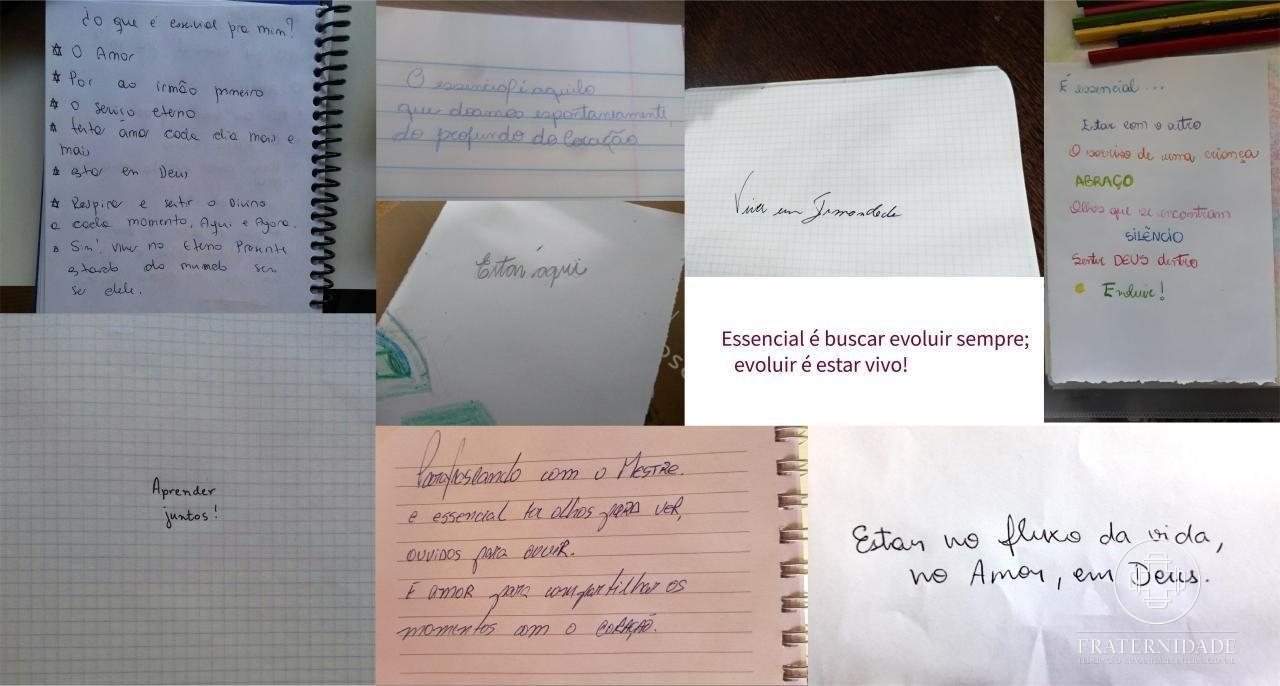 ¿O que é essencial pra mim?
☆ O Amor
☆ Por ao irmão primeiro
☆ O serviço eterno
☆ tentar amar cada dia mais e
mais
☆ estar em Deus
☆ Respirar e sentir o Divino
a cada momento, Aqui e Agora.
Sim! viver no Eterno Presente
estando do mundo sem
ser dele.
O essencial é aquilo
que doamos espontaneamente,
do profundo do Coração
Estar aqui
Viver em Irmandade
Essencial é buscar evoluir sempre;
evoluir é estar vivo!
É essencial...
Estar com o outro
O sorriso de uma criança
ABRAÇO
Olhos que se encontram
SILÊNCIO
Sentir DEUS dentro
Enclave!
Aprender
juntos!
Parafraseando com o MESTRE.
e essencial ter olhos para VER,
ouvidos para OUVIR.
E AMOR para compartilhar os
momentos com o CORAÇÃO.
Estar no fluxo da vida,
no Amor, em Deus.
FRATERNIDADE
FEDERAÇÃO HUMANITÁRIA INTERNACIONAL